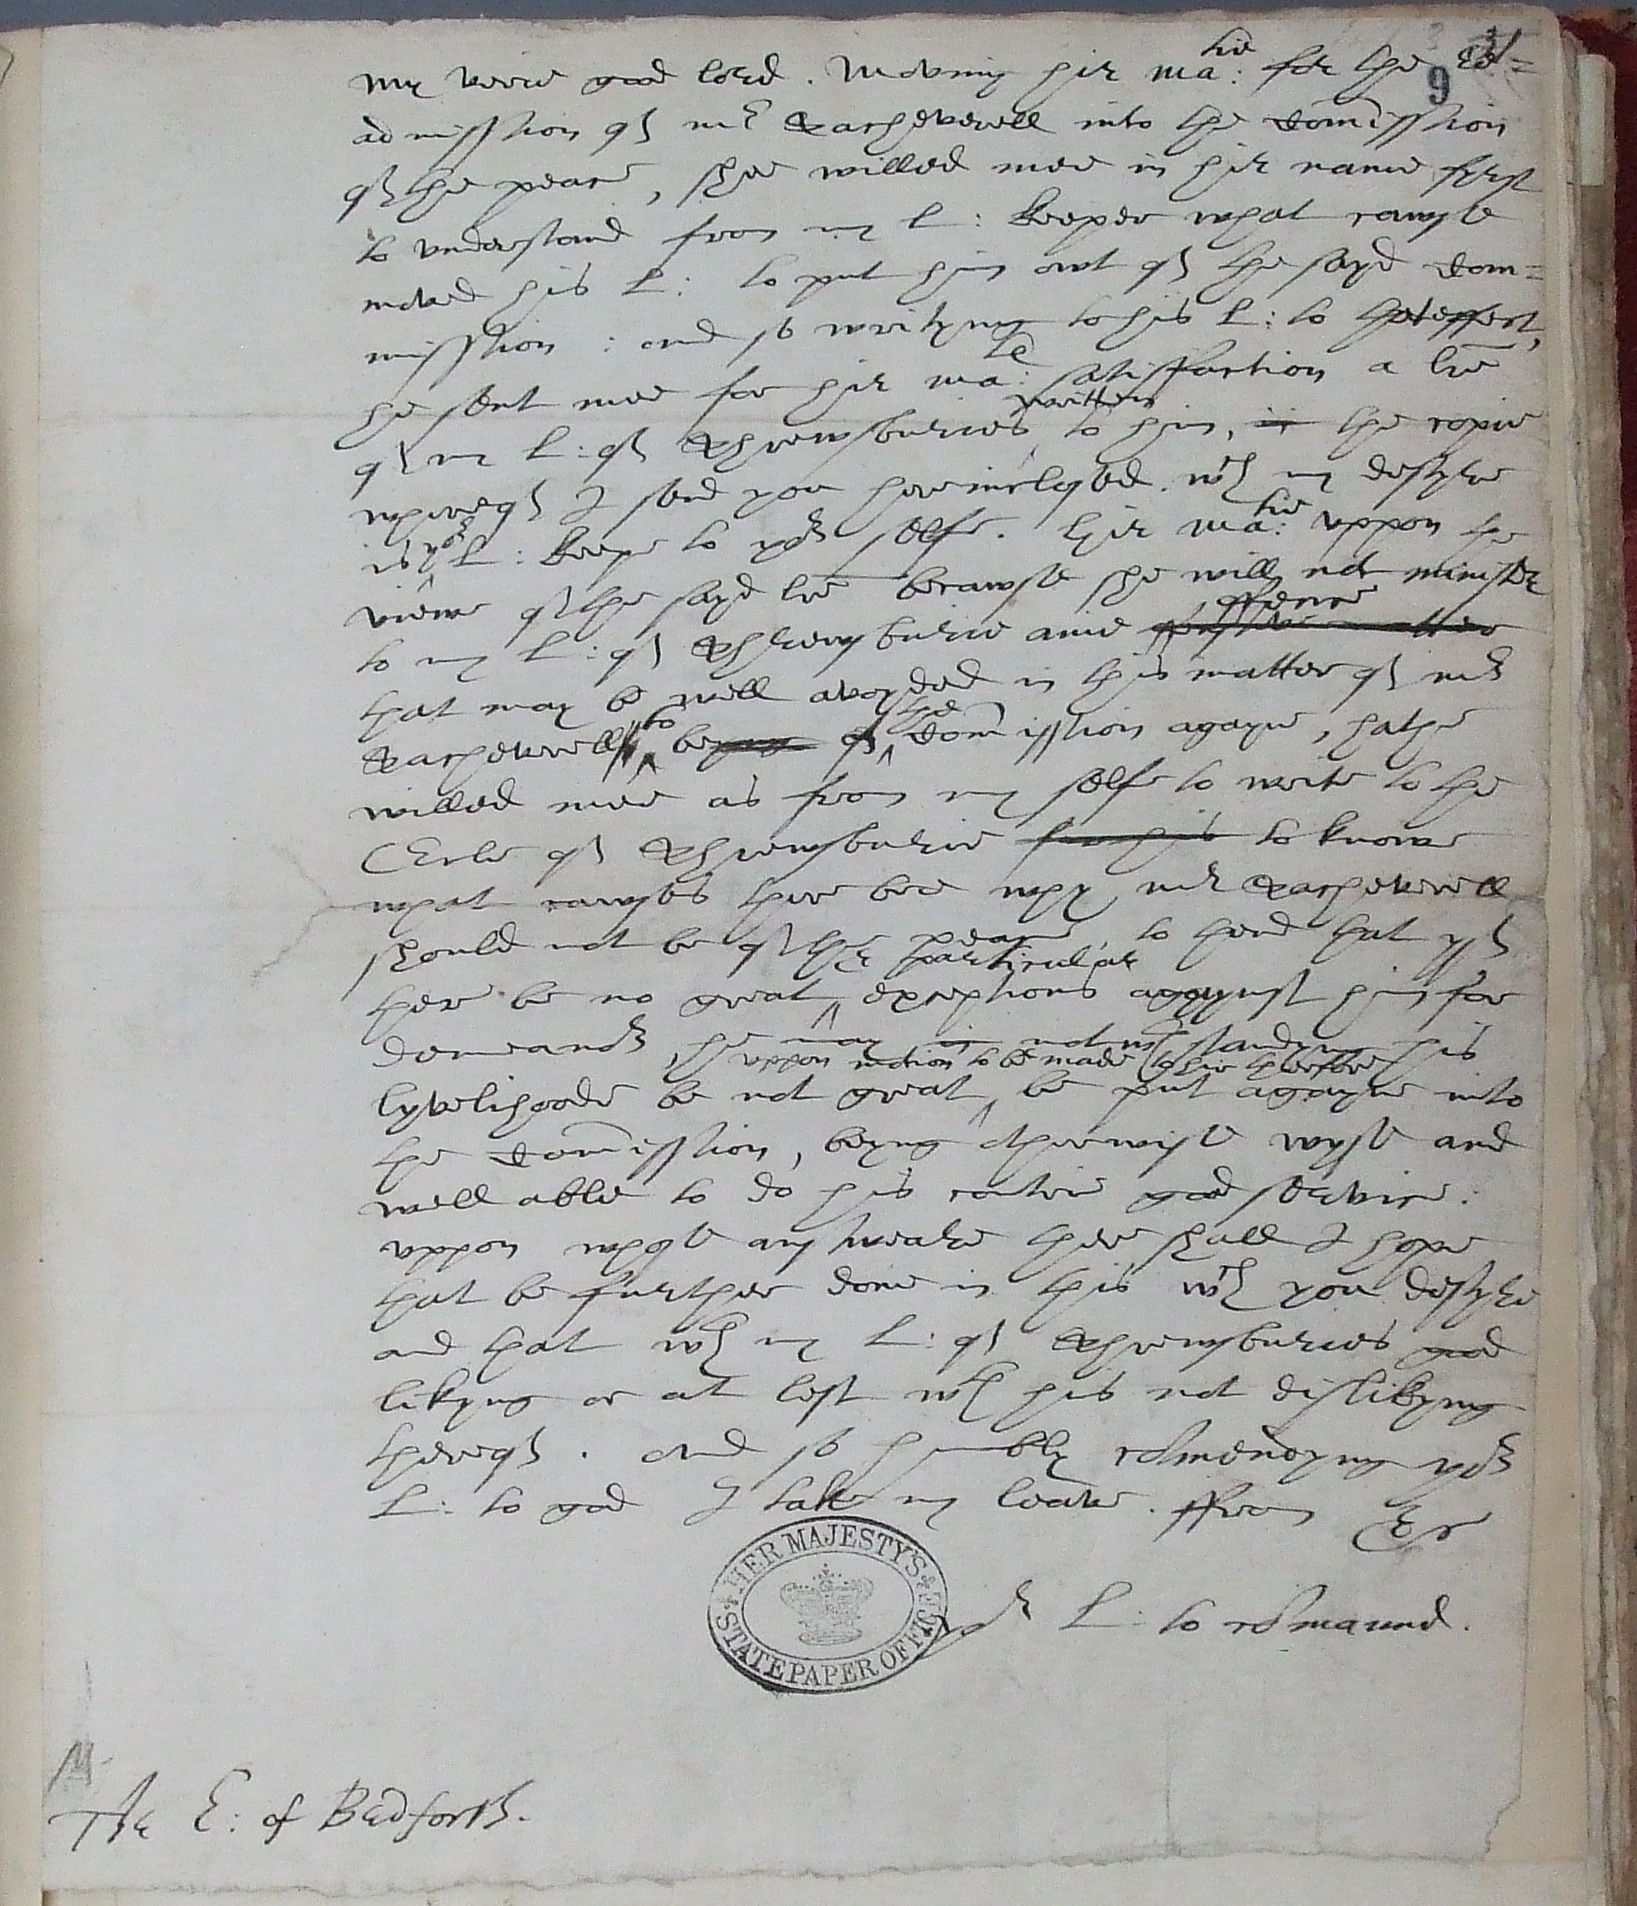 9
My verie good lord. Moving hir Ma:tie for the re=
admission of mr Sacheverell into the Com̃ission
of the peace, she willed mee in hir name first
to understand from my L: Keeper what cawse
moved his L: to put him owt of the sayd Com=
mission: and so writyng to his L: to that effect,
he sent mee for hir Ma:te satisfaction a lr̃e
of my L: of Shrewsburies written to him, the copie
wherof I send you hereinclosed. wch my desyre
is yor L: keepe to yor self. Hir Ma:tie uppon the
viewe of the sayd lr̃e becawse she will not minister
to my L: of Shrewsburie anie offence
that may be well avoyded in this matter of mr
Sacheverell to be of the Com̃ission agayne, hathe
willed mee as from my self to write to the
Erle of Shrewsburie for his to knowe
what cawses there bee why mr Sacheverell
should not be of the peace, to thend that yf
ther be no great particular exceptions agaynst him for
demeanor, he may notwthstandyng his
lyvelihoode be not great uppon motion to be made to hir therfore be put agayne into
the Com̃ission, beyng otherwise wyse and
well able to do his contrie good service:
uppon whose answeare there shall I hope
that be further done in this wch you desyre
and that wth my L: of Shrewsburies good
likyng or at lest wth his not dislikyng
therof. And so humbly com̃endyng yor
L: to god I take my leave. ffrom
yor L: to com̃aund.
HER MAJESTY'S STATE PAPER OFFICE
M.
The E: of Bedford.